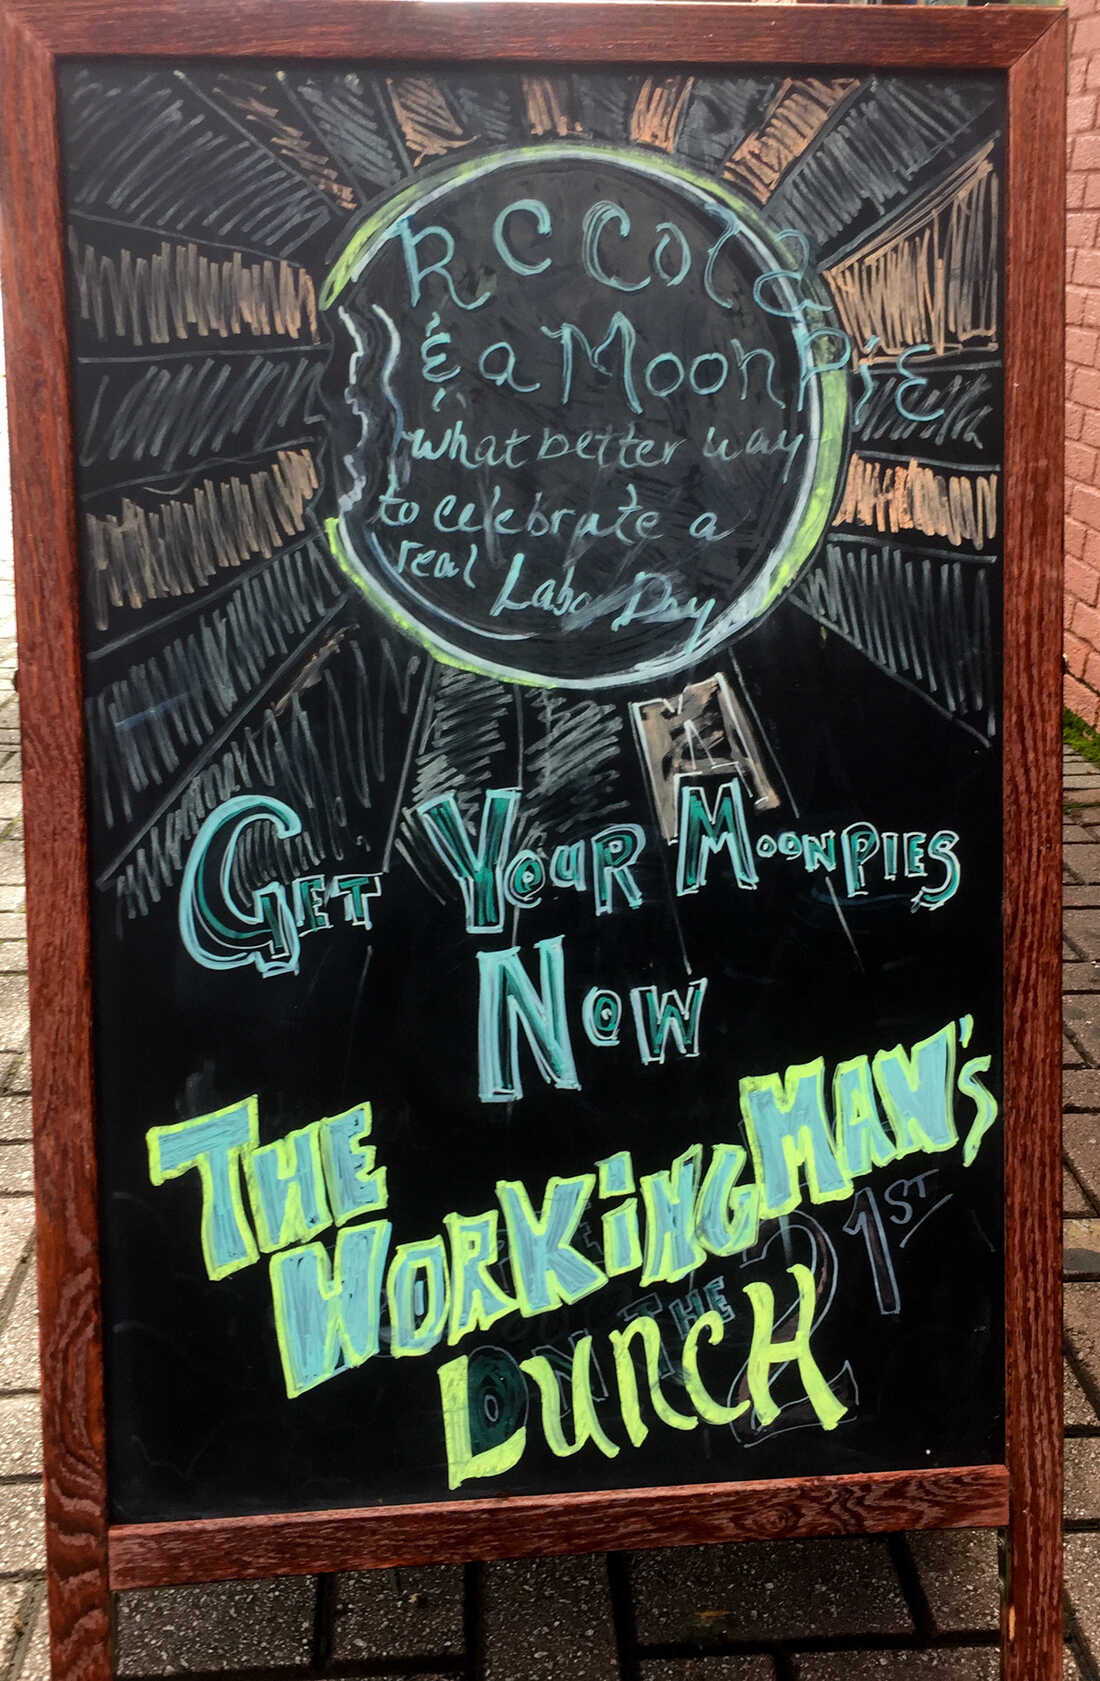 RC Cola
& a Moon Pie
what better way
to celebrate a
real Labor Day
GET YOUR MOONPIES
NOW
THE
WORKINGMAN'S
LUNCH
ON THE 21ST